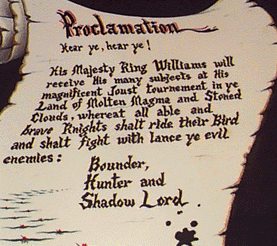 Proclamation
Hear ye, hear ye!
His Majesty King Williams will
receive His many subjects at His
magnificent Joust tournement in ye
Land of Molten Magma and Stoned
Clouds, whereat all able and
brave Knights shalt ride their Bird
and shalt fight with lance ye evil
enemies:
Bounder,
Hunter and
Shadow Lord.